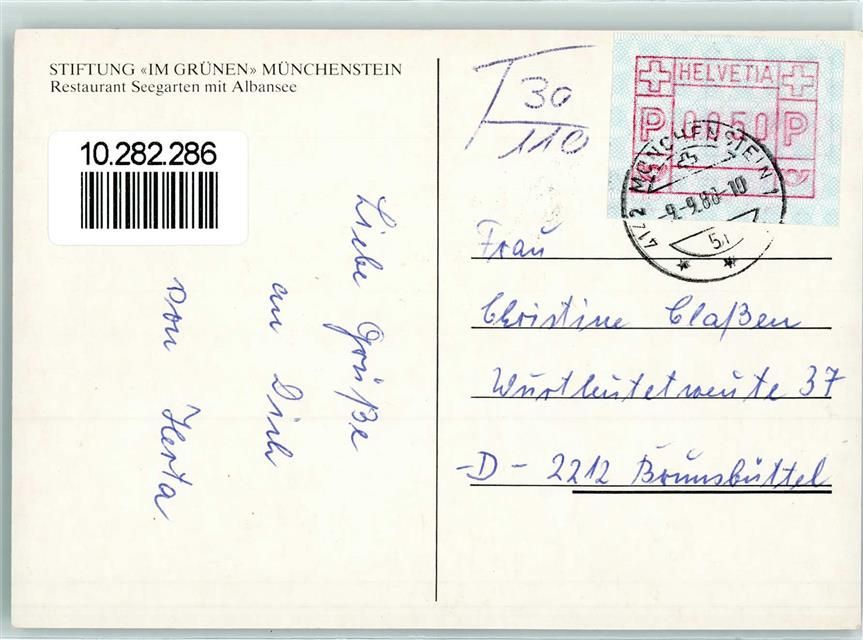 STIFTUNG «IM GRÜNEN» MÜNCHENSTEIN
Restaurant Seegarten mit Albansee
10.282.286
Liebe Grüße
an Dich
von Herta
T 30
110
HELVETIA
P 0050 P
4142 MÜNCHENSTEIN 1
-9.-9.88-10
Frau
Christine Claßen
Wurtleutetweute 37
-D- 2212 Brunsbüttel